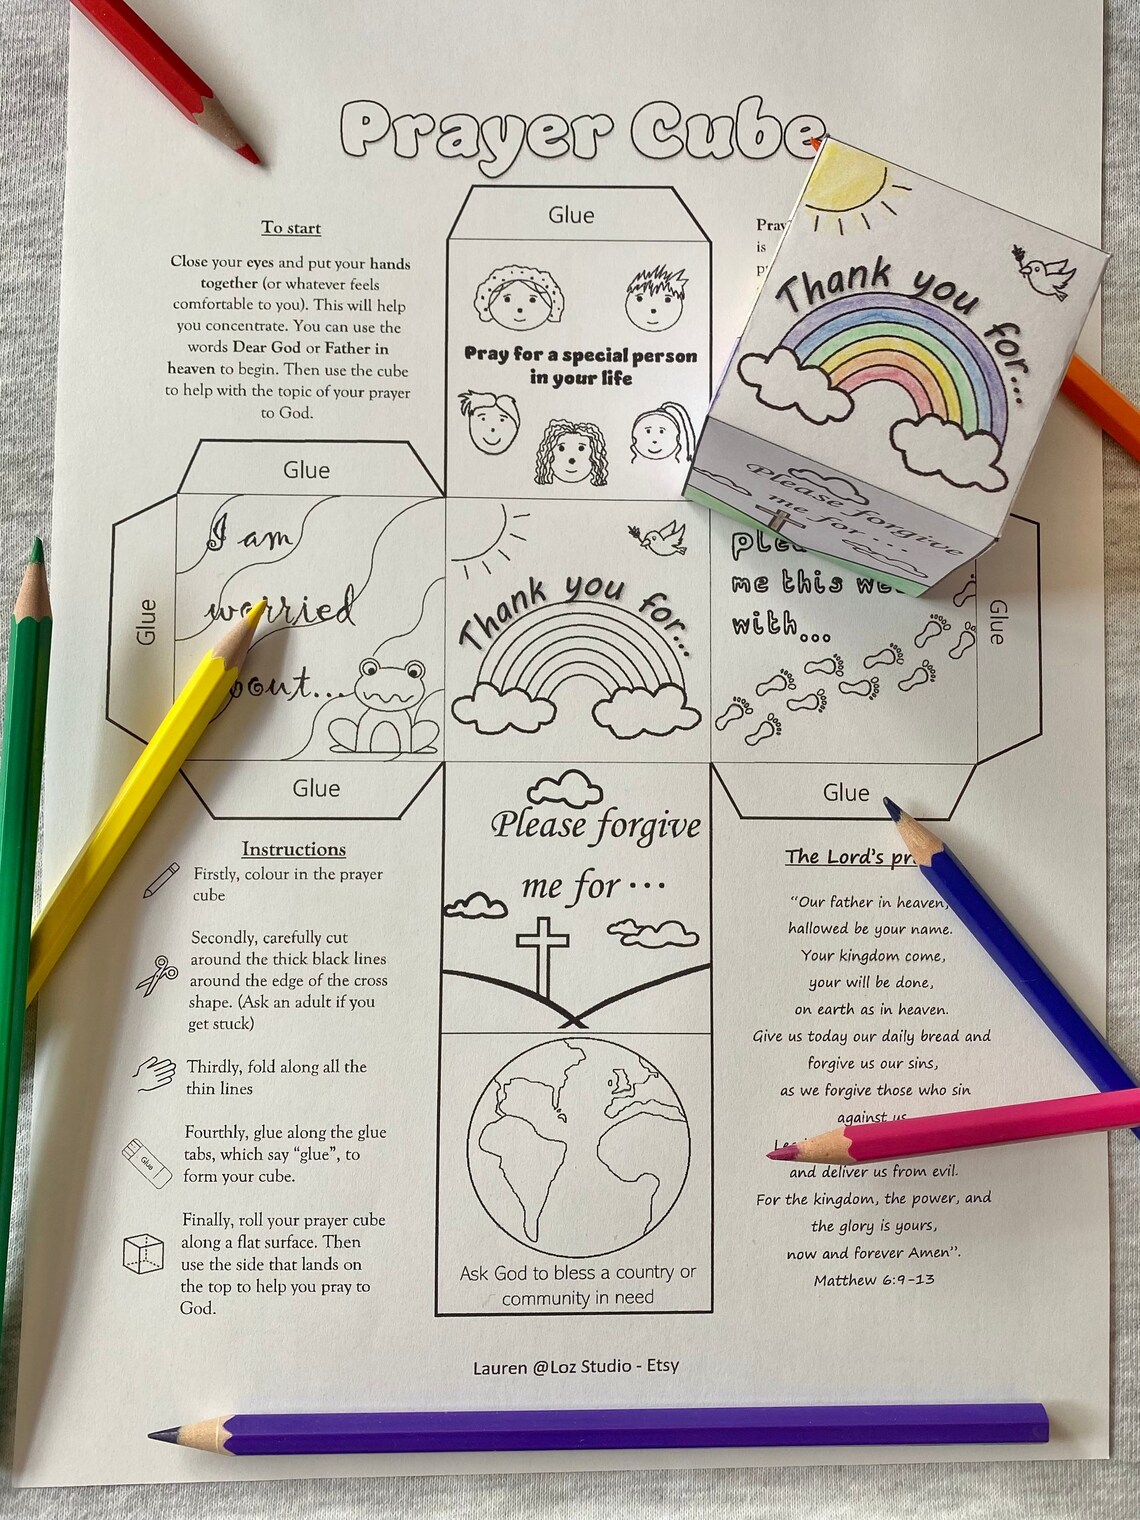 Prayer Cube
To start
Close your eyes and put your hands
together (or whatever feels
comfortable to you). This will help
you concentrate. You can use the
words Dear God or Father in
heaven to begin. Then use the cube
to help with the topic of your prayer
to God.
Glue
Pray for a special person
in your life
is
Thank you for...
Please forgive
me for ...
Glue
Glue
I am
worried
...
Thank you for...
me this
with...
Glue
Glue
Glue
Please forgive
me for ...
Ask God to bless a country or
community in need
Instructions
Firstly, colour in the prayer
cube
Secondly, carefully cut
around the thick black lines
around the edge of the cross
shape. (Ask an adult if you
get stuck)
Thirdly, fold along all the
thin lines
Fourthly, glue along the glue
tabs, which say “glue”, to
form your cube.
Glue
Finally, roll your prayer cube
along a flat surface. Then
use the side that lands on
the top to help you pray to
God.
The Lord’s
“Our father in heaven,
hallowed be your name.
Your kingdom come,
your will be done,
on earth as in heaven.
Give us today our daily bread and
forgive us our sins,
as we forgive those who sin
against us
and deliver us from evil.
For the kingdom, the power, and
the glory is yours,
now and forever Amen”.
Matthew 6:9-13
Lauren @Loz Studio - Etsy